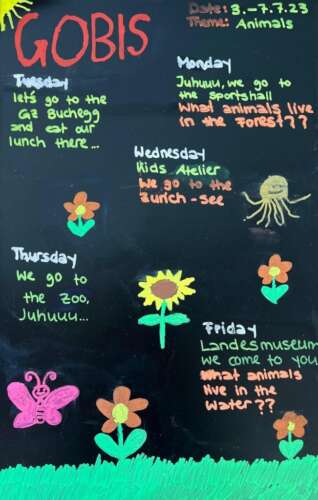 GOBIS
Date: 3.-7.7.23
Theme: Animals
Monday
Juhuuu, we go to
the sportshall
What animals live
in the Forest??
Tuesday
lets go to the
GZ Buchegg
and eat our
lunch there...
Wednesday
Kids Atelier
We go to the
Zurich-See
Thursday
We go to
the Zoo,
Juhuuu...
Friday
Landesmuseum
we come to you
What animals
live in the
water??